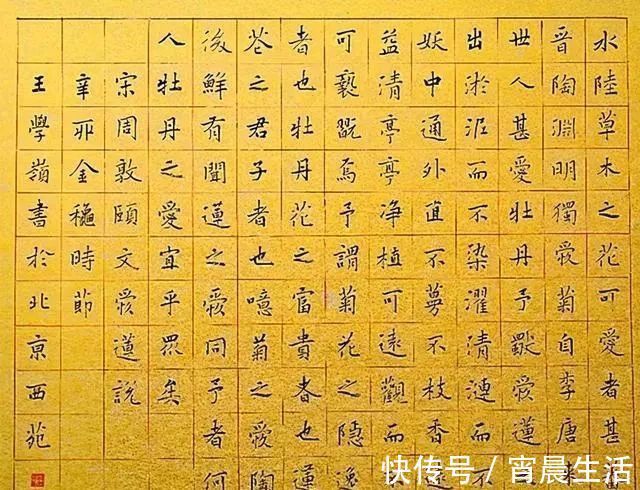 水陸草木之花可愛者甚蕃
晉陶渊明獨愛菊自李唐来
世人甚愛牡丹予愛蓮
出淤泥而不染濯清漣而
妖中通外直不蔓不枝香遠
益清亭亭净植可遠觀而
可褻翫焉予謂菊花之隱逸
者也牡丹花之富貴者也蓮
花之君子者也噫菊之愛陶
後鮮有聞蓮之愛同予者何
人牡丹之愛宜乎眾矣
宋周敦頤文愛蓮說
辛卯金穐時節
王學嶺書於北京西苑
快传号 / 宵晨生活